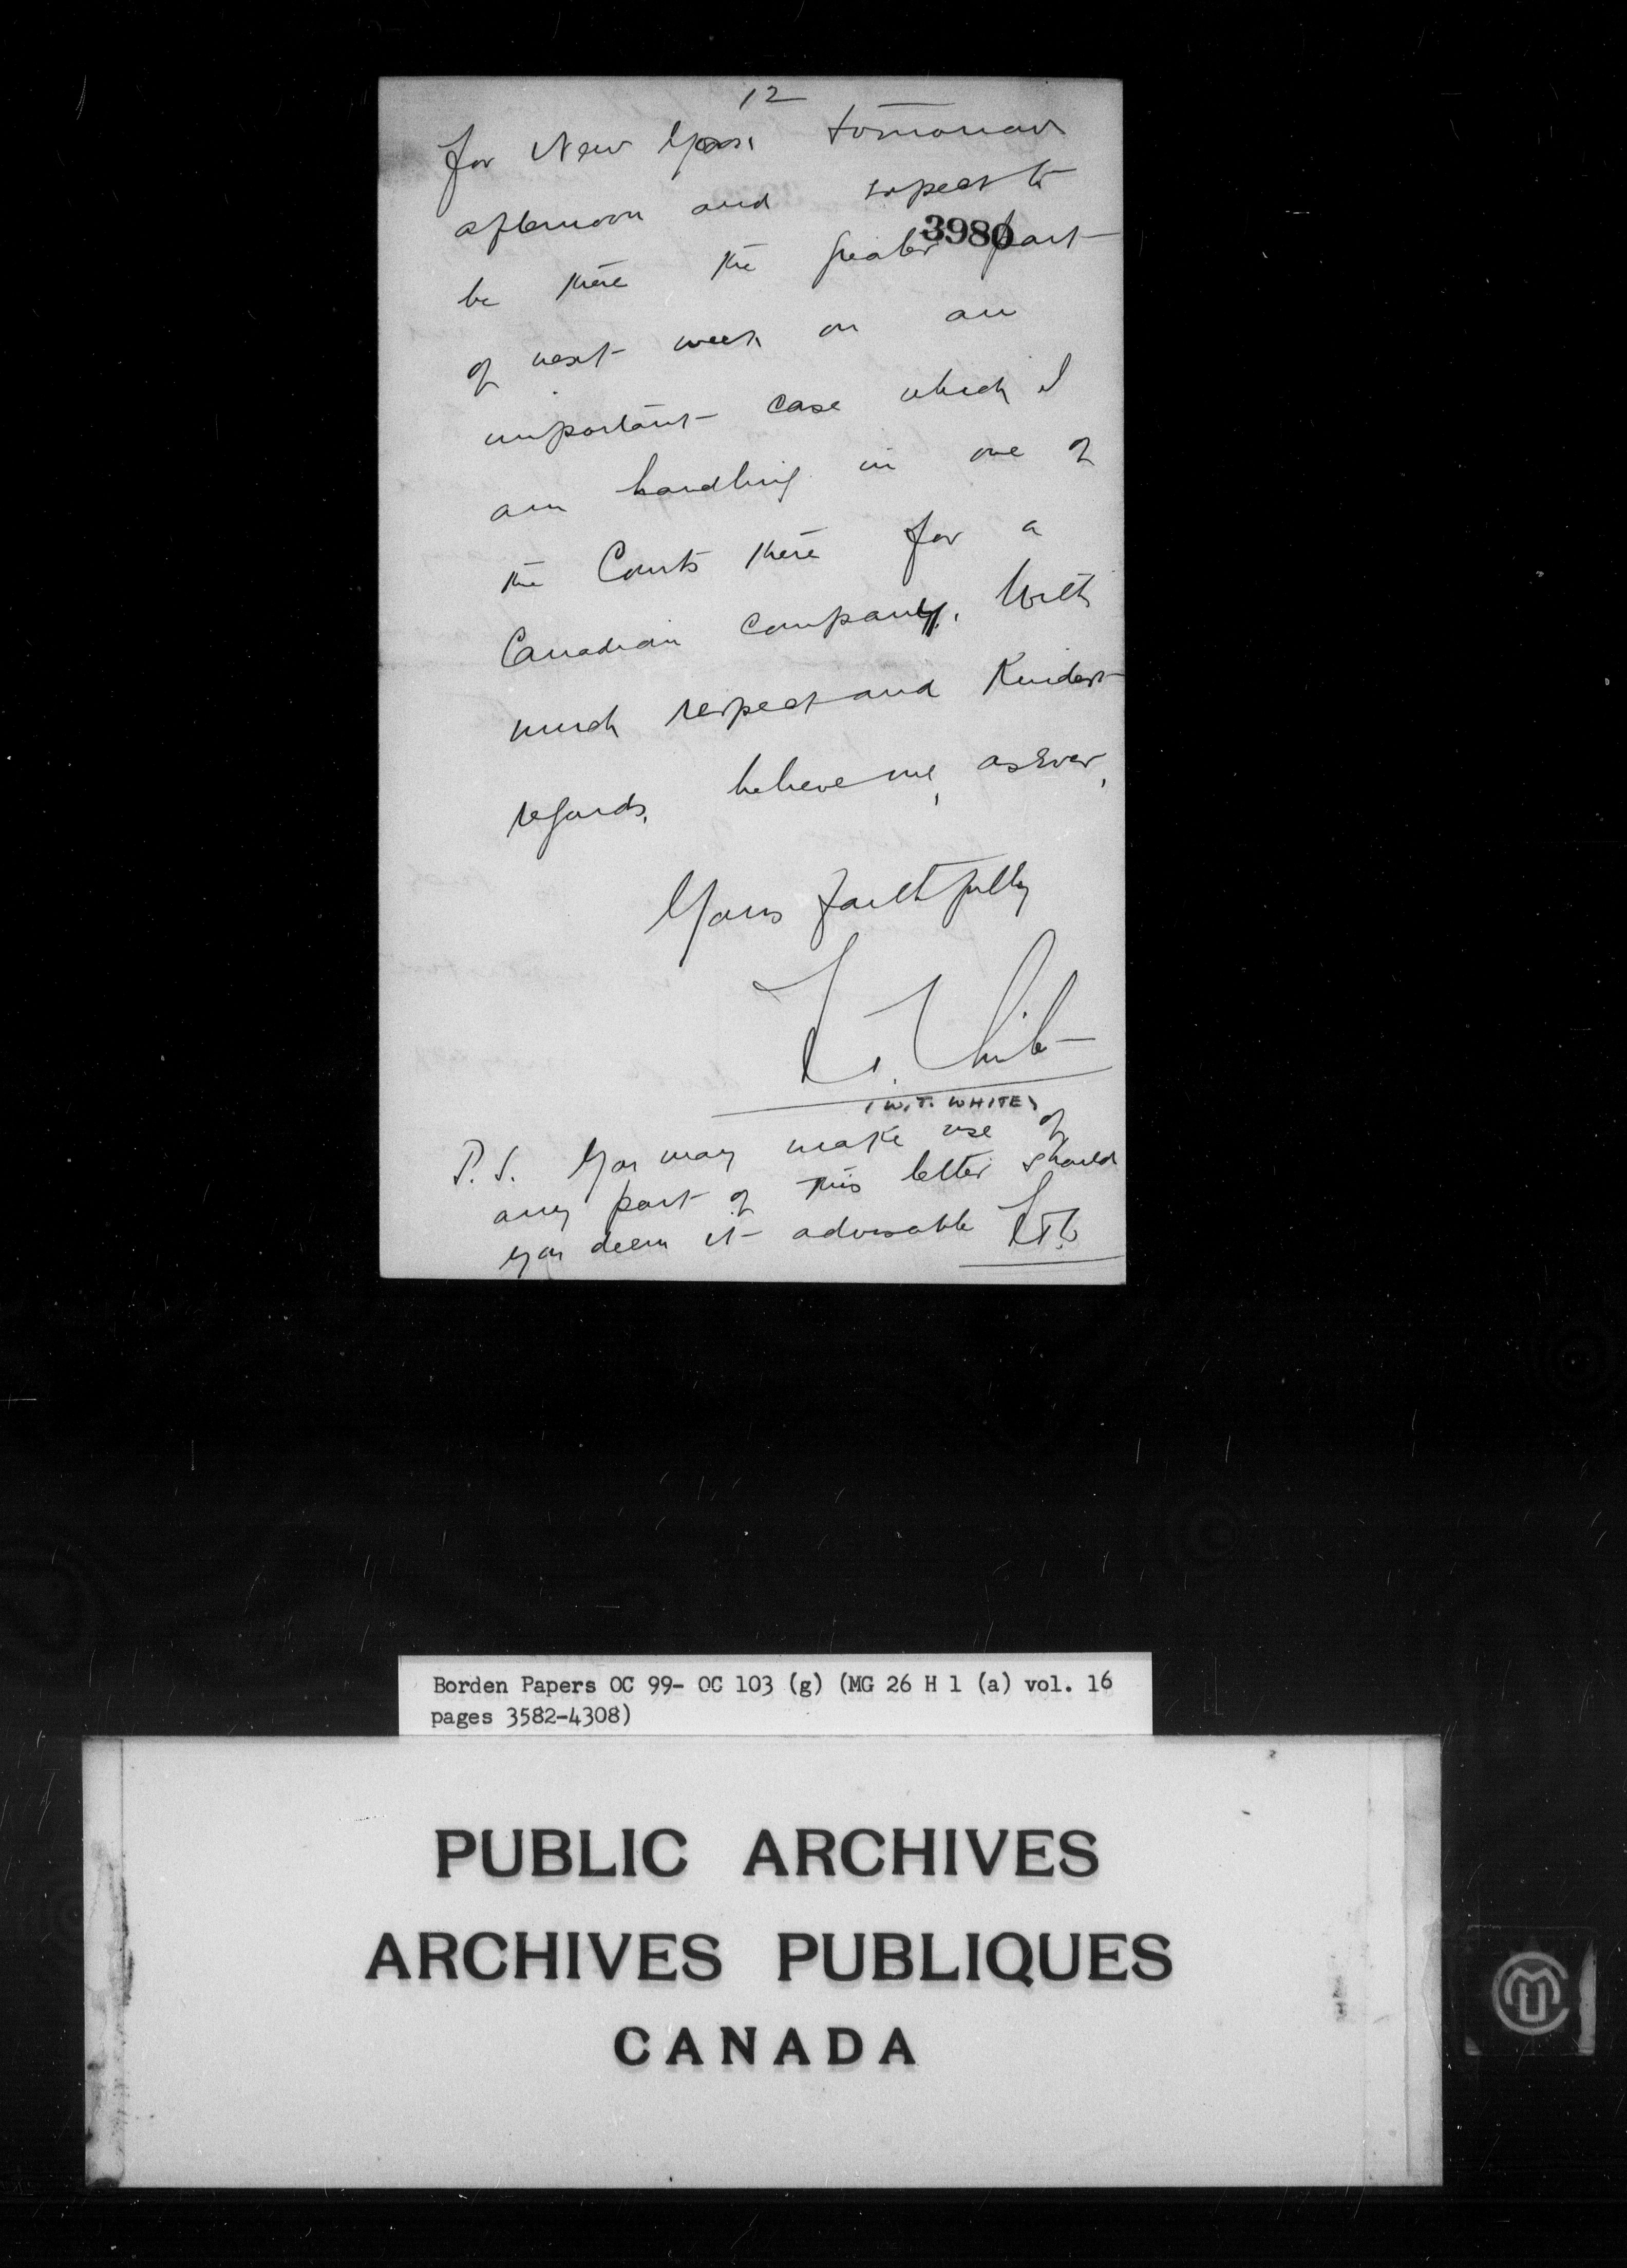 12
for New York tomorrow
afternoon and expect to
3980
be there the greater part
of next week on an
important case which I
am handling in one of
the Courts there for a
Canadian Company. With
much respect and Kindest
regards, believe me, as Ever,
Yours faithfully
W. T. White
(W.T. WHITE)
P.S. You may make use of
any part of this letter should
you deem it advisable
Borden Papers OC 99- OC 103 (g) (MG 26 H 1 (a) vol. 16
pages 3582-4308)
PUBLIC ARCHIVES
ARCHIVES PUBLIQUES
CANADA